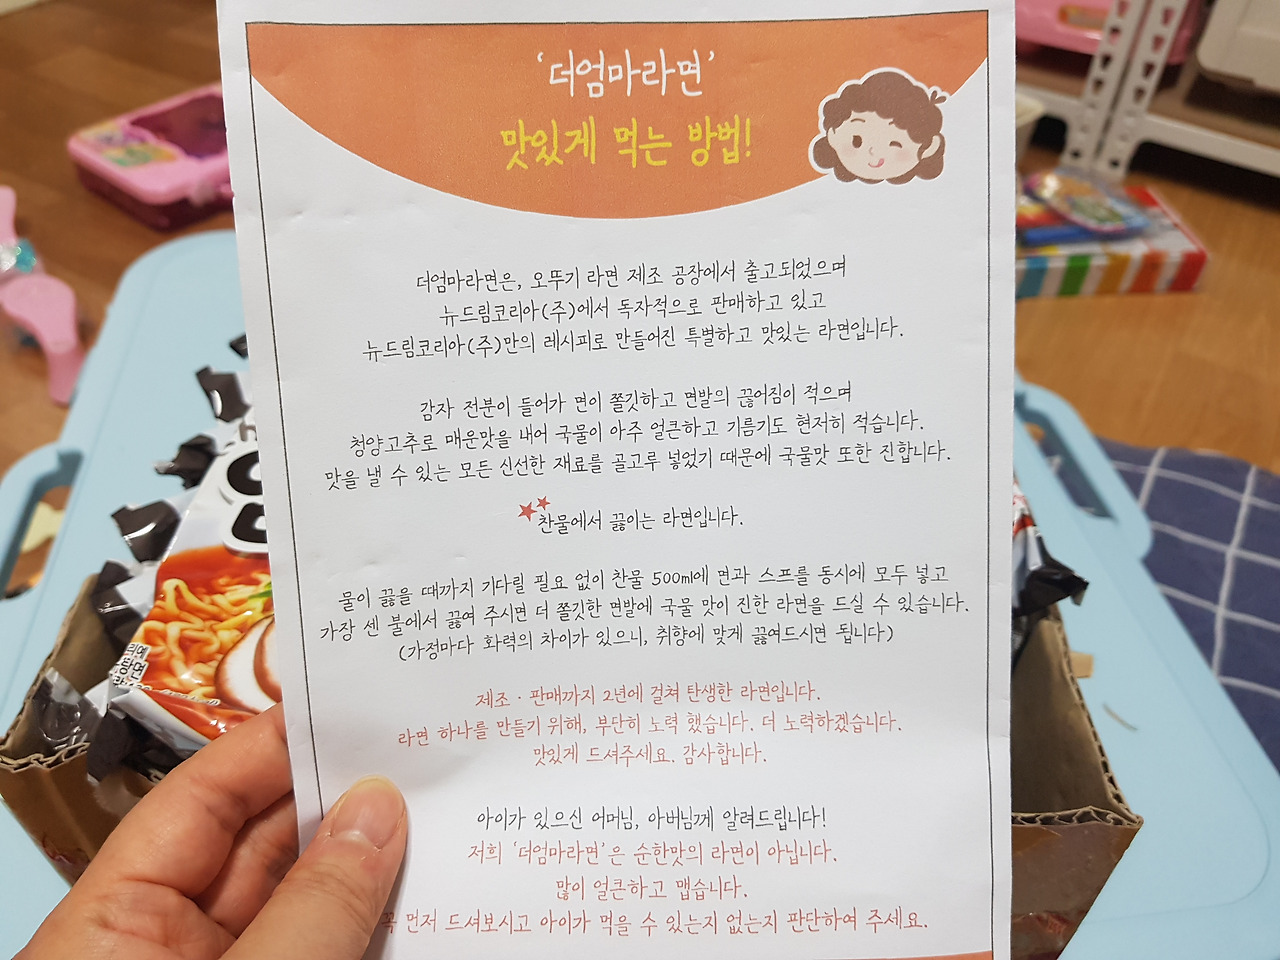 '더엄마라면'
맛있게 먹는 방법!
더엄마라면은, 오뚜기 라면 제조 공장에서 출고되었으며
뉴드림코리아(주)에서 독자적으로 판매하고 있고
뉴드림코리아(주)만의 레시피로 만들어진 특별하고 맛있는 라면입니다.
감자 전분이 들어가 면이 쫄깃하고 면발의 끊어짐이 적으며
청양고추로 매운맛을 내어 국물이 아주 얼큰하고 기름기도 현저히 적습니다.
맛을 낼 수 있는 모든 신선한 재료를 골고루 넣었기 때문에 국물맛 또한 진합니다.
찬물에서 끓이는 라면입니다.
물이 끓을 때까지 기다릴 필요 없이 찬물 500ml에 면과 스프를 동시에 모두 넣고
가장 센 불에서 끓여 주시면 더 쫄깃한 면발에 국물 맛이 진한 라면을 드실 수 있습니다.
(가정마다 화력의 차이가 있으니, 취향에 맞게 끓여드시면 됩니다)
제조 · 판매까지 2년에 걸쳐 탄생한 라면입니다.
라면 하나를 만들기 위해, 부단히 노력 했습니다. 더 노력하겠습니다.
맛있게 드셔주세요. 감사합니다.
아이가 있으신 어머님, 아버님께 알려드립니다!
저희 '더엄마라면'은 순한맛의 라면이 아닙니다.
많이 얼큰하고 맵습니다.
꼭 먼저 드셔보시고 아이가 먹을 수 있는지 없는지 판단하여 주세요.